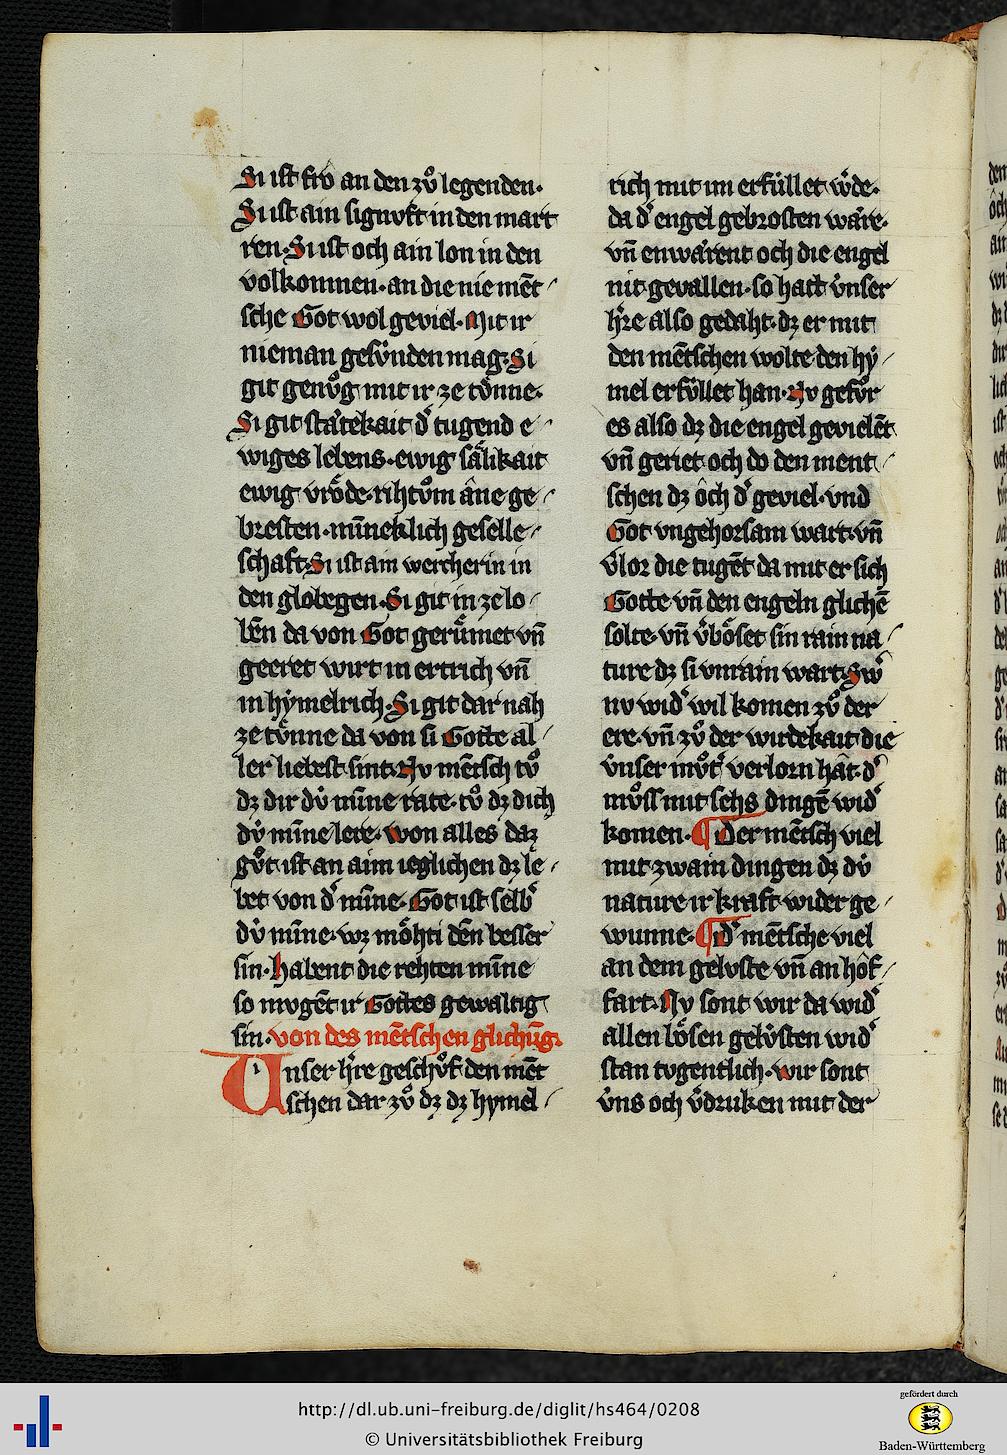 Si ist fro an den zuͦ legenden.
Si ist ain signvft in den mart
ren. Si ist och ain lon in den
volkomnen. an die nie mēt
sche Got wol geviel. Mit ir
nieman gesv́nden mag. Si
git genuͦg mit ir ze tv̊nne.
Si git stätekait dˀ tugend e
wiges lebens. ewig sälikait
ewig vröde. rihtuͦm âne ge
bresten. minneklich geselle
schaft. Si ist ain wercherin in
den globegen. Si git in ze lo
bēn da von Got geruͤmet vn̄
geeret wirt in ertrich vn̄
in hẏmelrich. Si git dar nah
ze tv̊nne da von si Gotte al
ler liebest sint. Nv mētsch tvͦ
dz dir dv́ mīne rate. tvͦ dz dich
dv́ mīne lere. won alles daz
guͦt ist an aim ieglichen dz le
bet von dˀ mīne. Got ist selbˀ
dv́ mīne. wz möhti dēn besser
sin. habent die rehten mīne
so mvgēt ir Gottes gewaltig
sin. von des mētschen glichūg.
Unser hˀre geschvͦf den mēt
schen dar zvͦ dz dz hymel
rich mit im erfúllet wˀde.
da dˀ engel gebrosten wäre.
vn̄ enwärent och die engel
nit gevallen. so hatt v́nser
hˀre also gedaht. dz er mit
den mētschen wolte den hẏ
mel erfv́llet han. Nv gefuͦr
es also dz die engel gevielēt
vn̄ geriet och do den ment
schen dz ôch dˀ geviel. vnd
Got vngehorsam wart. vn̄
vˀlor die tugēt da mit er sich
Gotte vn̄ den engeln glichē
solte. vn̄ vˀböset sin rain na
ture dz si vnrain wart. Swˀ
nv widˀ wil komen zvͦ der
ere. vn̄ zvͦ der wirdekait die
v́nser mvͦtˀ verlorn hât. dˀ
mvͦss mit sehs dingē widˀ
komen. ¶ Der mētsch viel
mit zwain dingen dz dv́
nature ir kraft wider ge
wunne. ¶ Dˀ mētsche viel
an dem gelvste vn̄ an hôf
fart. Nv sont wir da widˀ
allen bösen gelv́sten widˀ
stan tvgentlich. wir sont
v́ns och vˀdruken mit der
http://dl.ub.uni-freiburg.de/diglit/hs464/0208
© Universitätsbibliothek Freiburg
gefördert durch
Baden-Württemberg